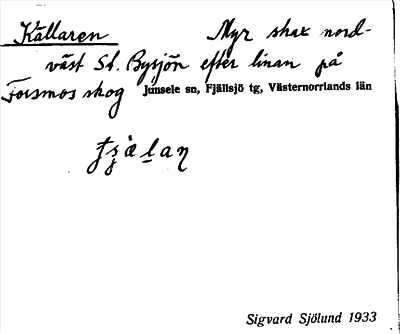 Källaren Myr strax nord-
väst St. Bysjön efter linan på
Forsmos skog Junsele sn, Fjällsjö tg, Västernorrlands län
Sigvard Sjölund 1933